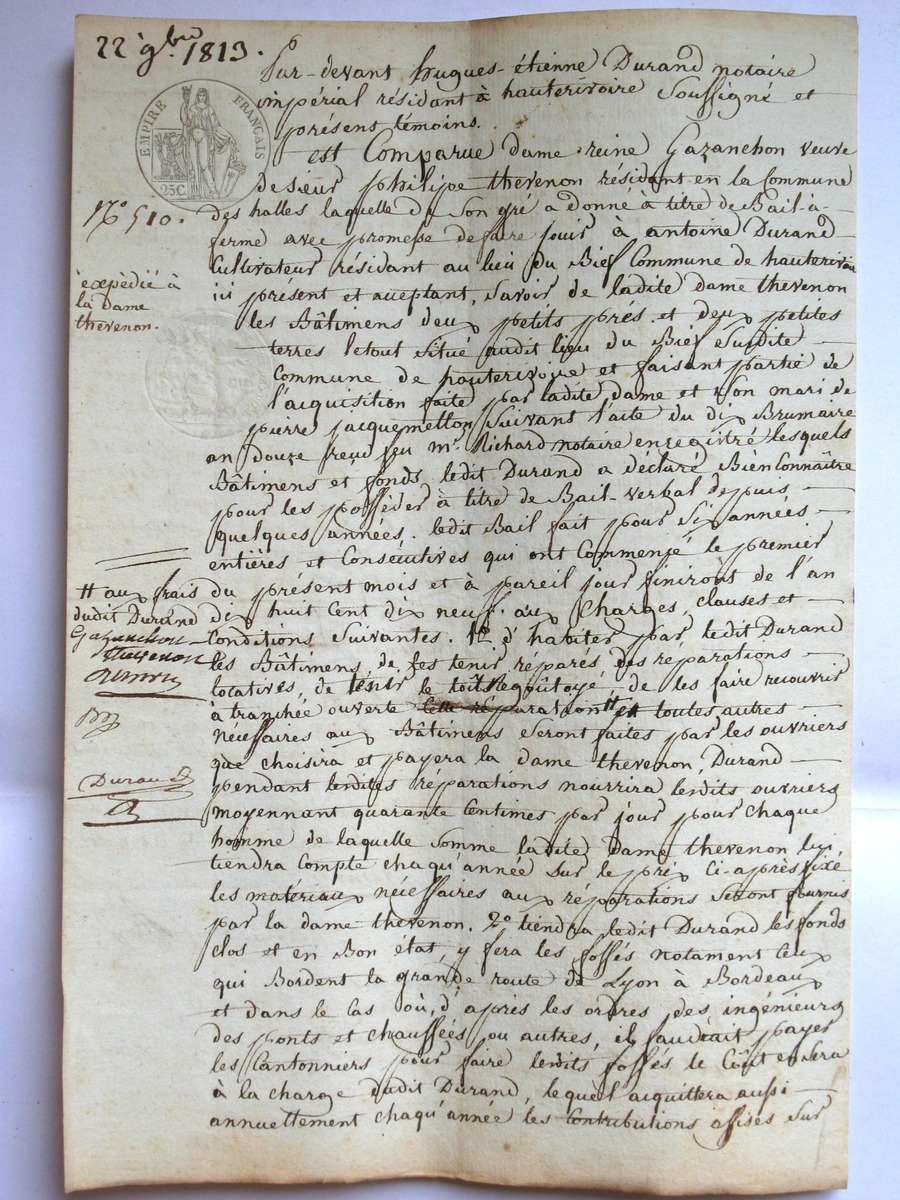 22 9.bre 1813.
EMPIRE FRANÇAIS
25C.
Par-devant hugues-étienne Durand notaire
impérial résidant à hauterivoire Soussigné et
présent témoins.
est Comparue dame reine Gazanchon veuve
de sieur philipe thevenon résidant en la Commune
N.o 510.
des halles laquelle de Son gré a donné à titre de Bail-à-
ferme avec promesse de faire jouir à antoine Durand
Cultivateur résidant au lieu du Bief Commune de hauterivoi
ici présent et acceptant, savoir de ladite dame thevenon
éxpédié à
la Dame
thevenon.
les Bâtimens deux petits prés et deux petites
terres letout situé audit lieu du Bief Susdite
Commune de hauterivoire et faisant partie de
l'acquisition faite par ladite dame et Son mari de
pierre jacquemetton Suivant l'acte du dix Brumaire
an douze reçu feu m.e Richard notaire enregistré lesquels
Bâtimens et fonds ledit Durand a déclaré Bien Connaître
pour les posséder à titre de Bail-verbal depuis
quelques années. ledit Bail fait pour Six années
entières et Consécutives qui ont Commencé le premier
du présent mois et à pareil jour finiront de l'an
dix huit Cent dix neuf. aux Charges, clauses et
Conditions Suivantes. 1.o d'habiter par ledit Durand
les Bâtimens, de les tenir réparés des réparations
locatives, de tenir le toît regoutoyé, de les faire recouvrir
à tranchée ouverte cette réparation # et toutes autres
# aux frais
dudit Durand
Gazanchon
thevenon
Durand
nécessaires aux Bâtimens Seront faites par les ouvriers
que choisira et payera la dame thevenon, Durand
pendant lesdites réparations nourrira lesdits ouvriers
moyennant quarante Centimes par jour pour chaque
homme de laquelle Somme ladite Dame thevenon lui
tiendra Compte chaqu'année Sur le prix Ci-après fixé
les matériaux nécessaires aux réparations Seront fournis
par la dame thevenon. 2.o tiendra ledit Durand les fonds
clos et en Bon état, y fera les fossés notament Ceux
qui Bordent la grande route de Lyon à Bordeaux
et dans le Cas où, d'après les ordres des ingénieurs
des ponts et chaussées, ou autres, il faudrait payer
les Cantonniers pour faire lesdits fossés le Coût en Sera
à la charge dudit Durand, lequel acquittera aussi
annuellement chaqu'année les Contributions assises Sur